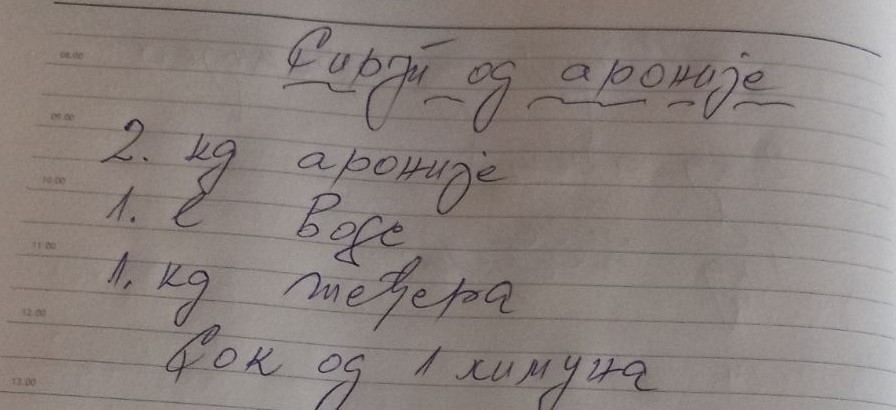 Сируп од ароније
08.00
09.00
2. кg ароније
10.00
1. l воде
11.00
1. кg шећера
12.00
Сок од 1 лимуна
13.00